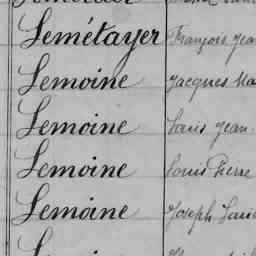 Lemétayer François Jea
Lemoine Jacques Ma
Lemoine Louis Jean
Lemoine Louis Pierre
Lemoine Joseph Loui